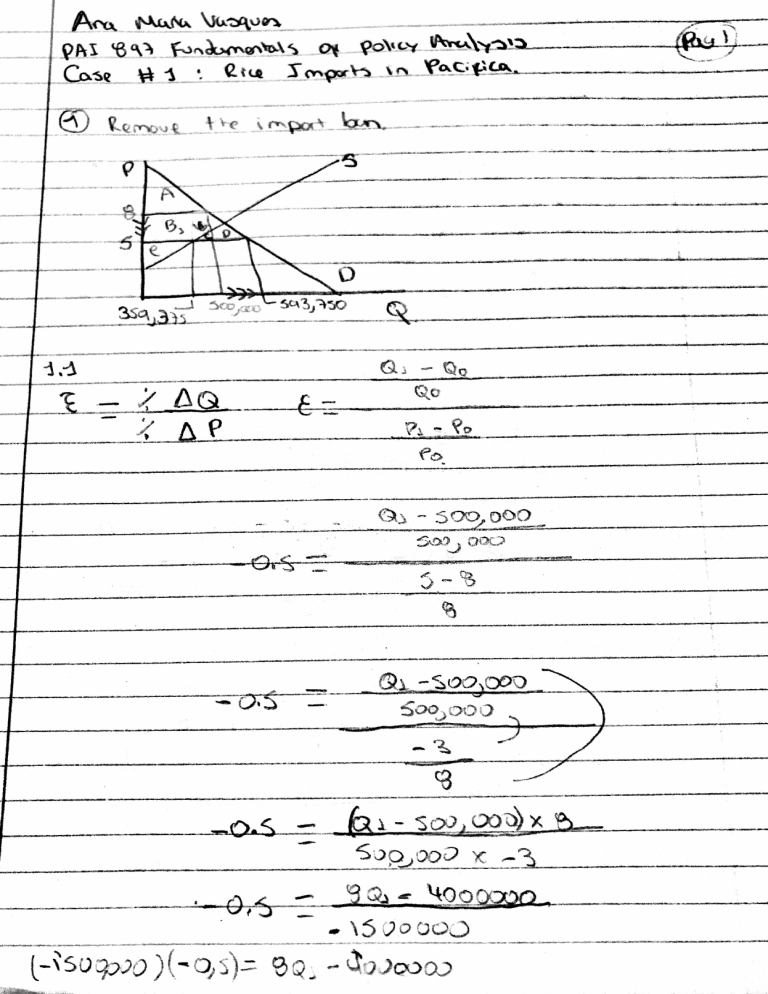 Ana Maria Vasques
PAI 897 Fundamentals of Policy Analysis
Pag 1
Case # 1 : Rice Imports in Pacifica.
① Remove the import ban.
P
S
A
8
B,
D
5
C
D
359,375
500,000
593,750
Q
1.1
Ɛ = % ΔQ / % ΔP
Ɛ = (Q1 - Q0 / Q0) / (P1 - P0 / P0)
-0.5 = (Q1 - 500,000 / 500,000) / (5 - 8 / 8)
-0.5 = (Q1 - 500,000 / 500,000) / (-3 / 8)
-0.5 = (Q1 - 500,000) x 8 / 500,000 x -3
-0.5 = 8Q1 - 4000000 / -1500000
(-1500000)(-0,5) = 8Q1 - 4000000